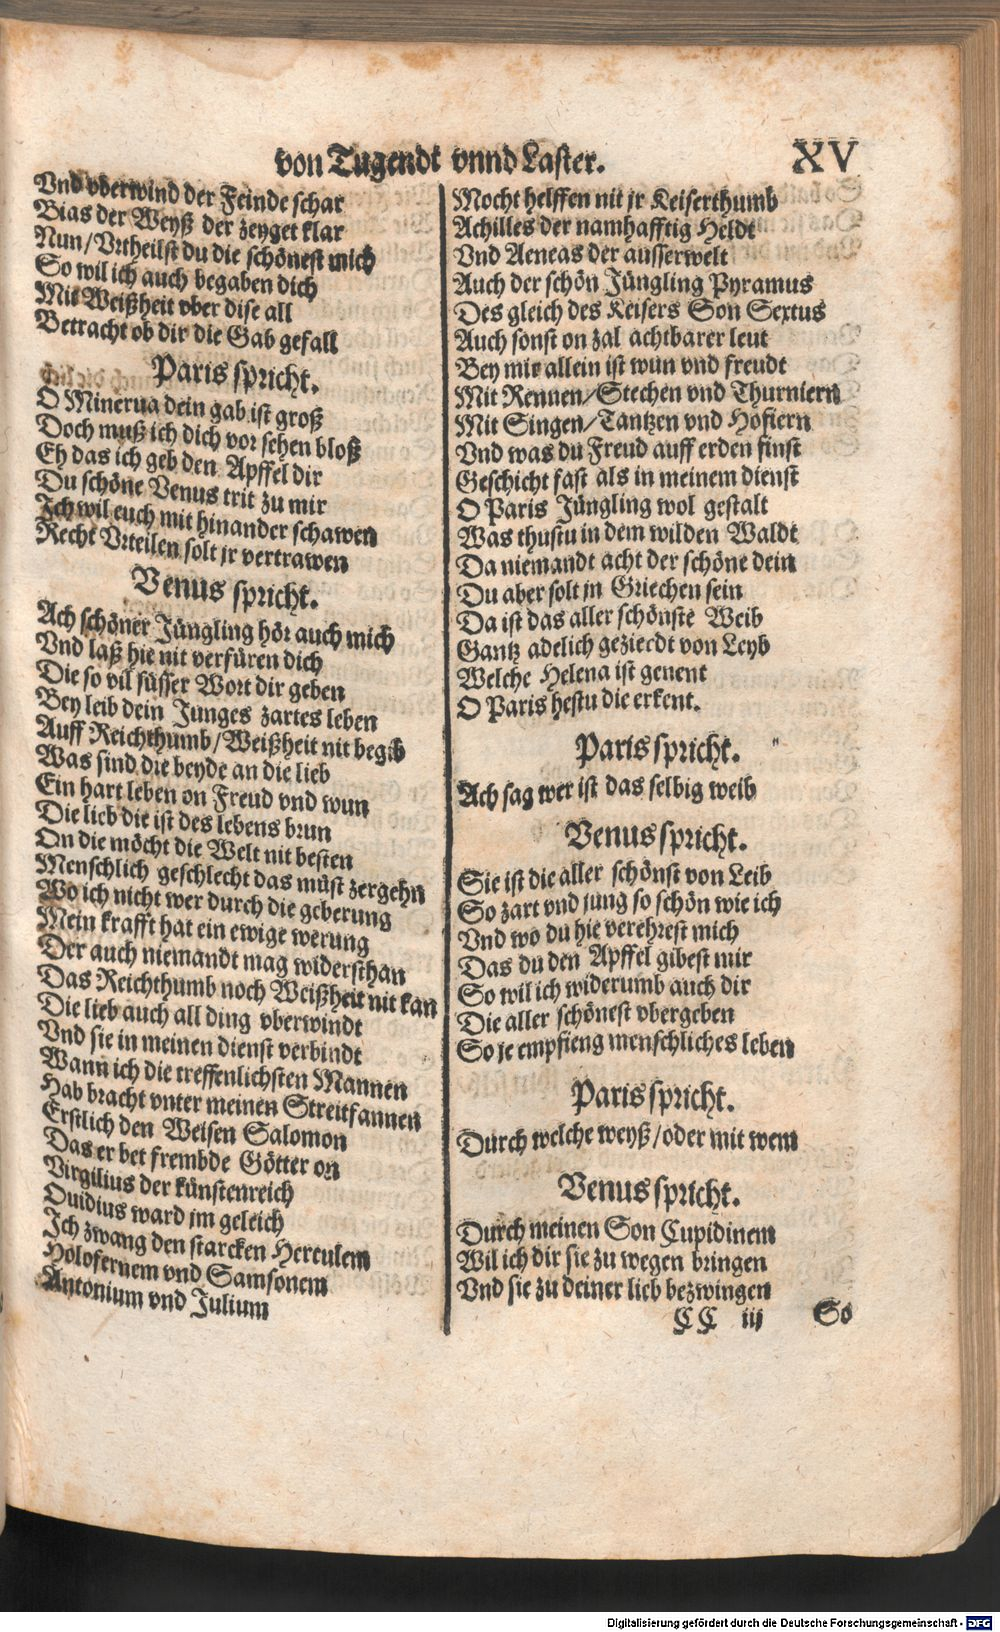 von Tugendt vnnd Laster.
XV
Vnd vberwind der Feinde schar
Bias der Weyß der zeyget klar
Nun/Vrtheilst du die schönest mich
So wil ich auch begaben dich
Mit Weißheit vber dise all
Betracht ob dir die Gab gefall
Paris spricht.
O Minerua dein gab ist groß
Doch muß ich dich vor sehen bloß
Eh das ich geb den Apffel dir
Du schöne Venus trit zu mir
Ich wil euch mit hinander schawen
Recht Vrteilen solt jr vertrawen
Venus spricht.
Ach schöner Jüngling hör auch mich
Vnd laß hie nit verfüren dich
Die so vil süsser Wort dir geben
Bey leib dein Junges zartes leben
Auff Reichthumb/Weißheit nit begib
Was sind die beyde an die lieb
Ein hart leben on Freud vnd wun
Die lieb die ist des lebens brun
On die möcht die Welt nit besten
Menschlich geschlecht das müst zergehn
Wo ich nicht wer durch die geberung
Mein krafft hat ein ewige werung
Der auch niemandt mag widersthan
Das Reichthumb noch Weißheit nit kan
Die lieb auch all ding vberwindt
Vnd sie in meinen dienst verbindt
Wann ich die treffenlichsten Mannen
Hab bracht vnter meinen Streitfannen
Erstlich den Weisen Salomon
Das er bet frembde Götter on
Virgilius der künstenreich
Ouidius ward jm geleich
Ich zwang den starcken Herculem
Holofernem vnd Samsonem
Antonium vnd Julium
Mocht helffen nit jr Keiserthumb
Achilles der namhafftig Heldt
Vnd Aeneas der ausserwelt
Auch der schön Jüngling Pyramus
Des gleich des Keisers Son Sextus
Auch sonst on zal achtbarer leut
Bey mir allein ist wun vnd freudt
Mit Rennen/Stechen vnd Thurniern
Mit Singen/Tantzen vnd Hofiern
Vnd was du Freud auff erden finst
Geschicht fast als in meinem dienst
O Paris Jüngling wol gestalt
Was thustu in dem wilden Waldt
Da niemandt acht der schöne dein
Du aber solt jn Griechen sein
Da ist das aller schönste Weib
Gantz adelich gezierdt von Leyb
Welche Helena ist genent
O Paris hestu die erkent.
Paris spricht.
Ach sag wer ist das selbig weib
Venus spricht.
Sie ist die aller schönst von Leib
So zart vnd jung so schön wie ich
Vnd wo du hie verehrest mich
Das du den Apffel gibest mir
So wil ich widerumb auch dir
Die aller schönest vbergeben
So je empfieng menschliches leben
Paris spricht.
Durch welche weyß/oder mit wem
Venus spricht.
Durch meinen Son Cupidinem
Wil ich dir sie zu wegen bringen
Vnd sie zu deiner lieb bezwingen
CC iij So
Digitalisierung gefördert durch die Deutsche Forschungsgemeinschaft - DFG